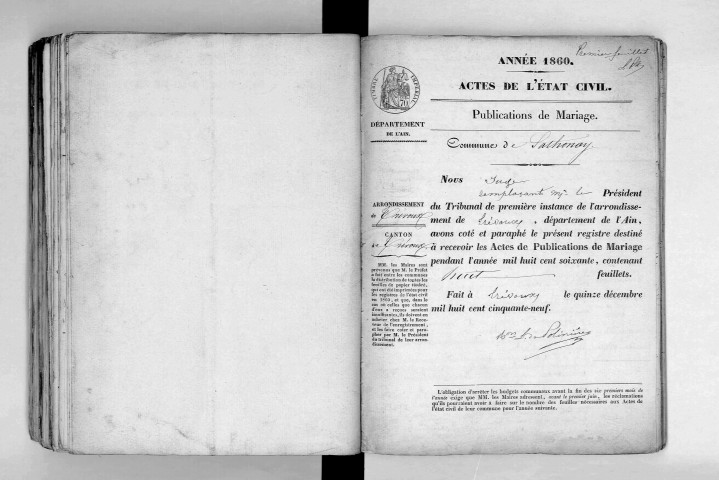 Premier feuillet
ANNÉE 1860.
ACTES DE L'ÉTAT CIVIL.
Publications de Mariage.
TIMBRE IMPERIAL
DÉPARTEMENT
DE L'AIN.
Commune de Sathonay
ARRONDISSEMENT
de Trévoux
CANTON
de Trévoux
MM. les Maires sont
prévenus que M. le Préfet
a fait entre les communes
la distribution de toutes les
feuilles de papier timbré,
qui ont été imprimées pour
les registres de l'état civil
en 1860, et que, dans le
cas où celles que chacun
d'eux a reçues seraient
insuffisantes, ils doivent en
acheter chez M. le Rece-
veur de l'enregistrement,
et les faire coter et para-
pher par M. le Président
du tribunal de leur arron-
dissement.
Nous Juge
remplaçant Mr le Président
du Tribunal de première instance de l'arrondisse-
ment de Trévoux, département de l'Ain,
avons coté et paraphé le présent registre destiné
à recevoir les Actes de Publications de Mariage
pendant l'année mil huit cent soixante, contenant
huit feuillets.
Fait à Trévoux le quinze décembre
mil huit cent cinquante-neuf.
L'obligation d'arrêter les budgets communaux avant la fin des six premiers mois de
l'année exige que MM. les Maires adressent, avant le premier juin, les réclamations
qu'ils pourraient avoir à faire sur le nombre des feuilles nécessaires aux Actes de
l'état civil de leur commune pour l'année suivante.